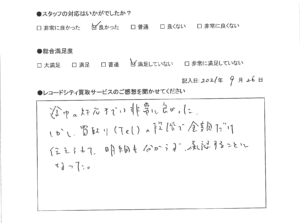 ●スタッフの対応はいかがでしたか?
□非常に良かった □良かった □普通 □良くない □非常に良くない
●総合満足度
□大満足 □満足 □普通 □満足していない □非常に満足していない
記入日:2021年 9月26日
●レコードシティ買取サービスのご感想を聞かせてください
途中の対応までは非常に良かった。
しかし、買取り(Tel)の段階で金額だけ
伝えられて、明細も分からず、承諾することに
なった。